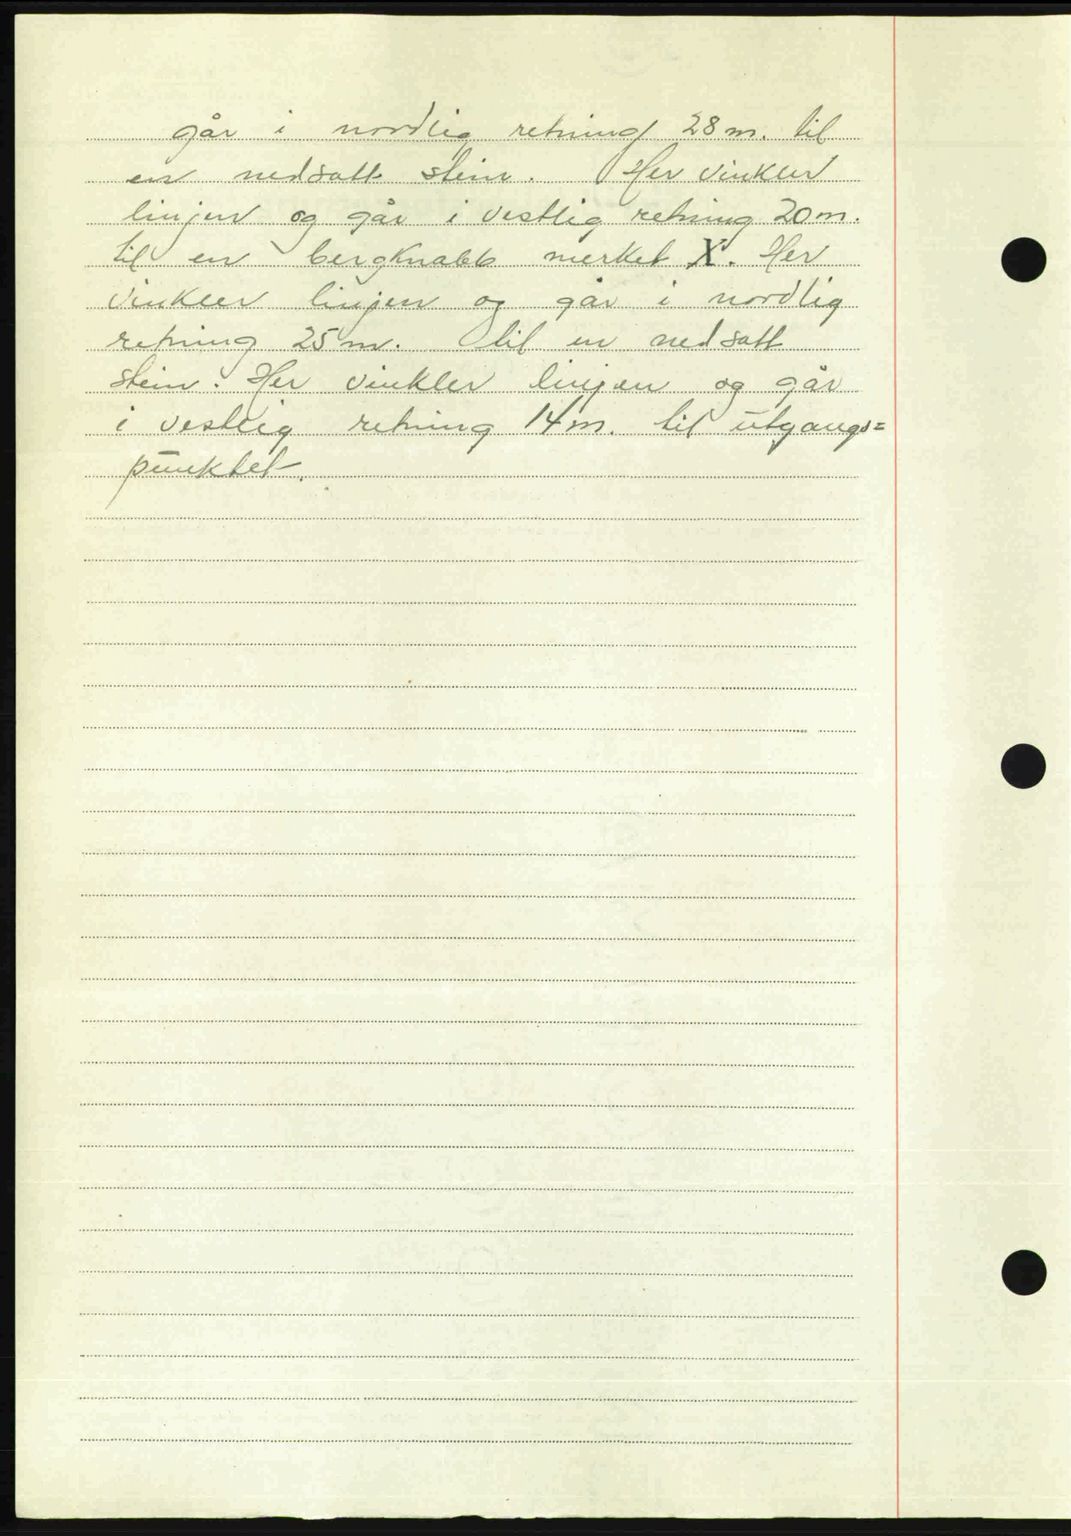 går i nordlig retning 28 m. til
en nedsatt stein. Her vinkler
linjen og går i vestlig retning 20 m.
til en bergknabb merket X. Her
vinkler linjen og går i nordlig
retning 25 m. til en nedsatt
stein. Her vinkler linjen og går
i vestlig retning 14 m. til utgangs=
punktet.